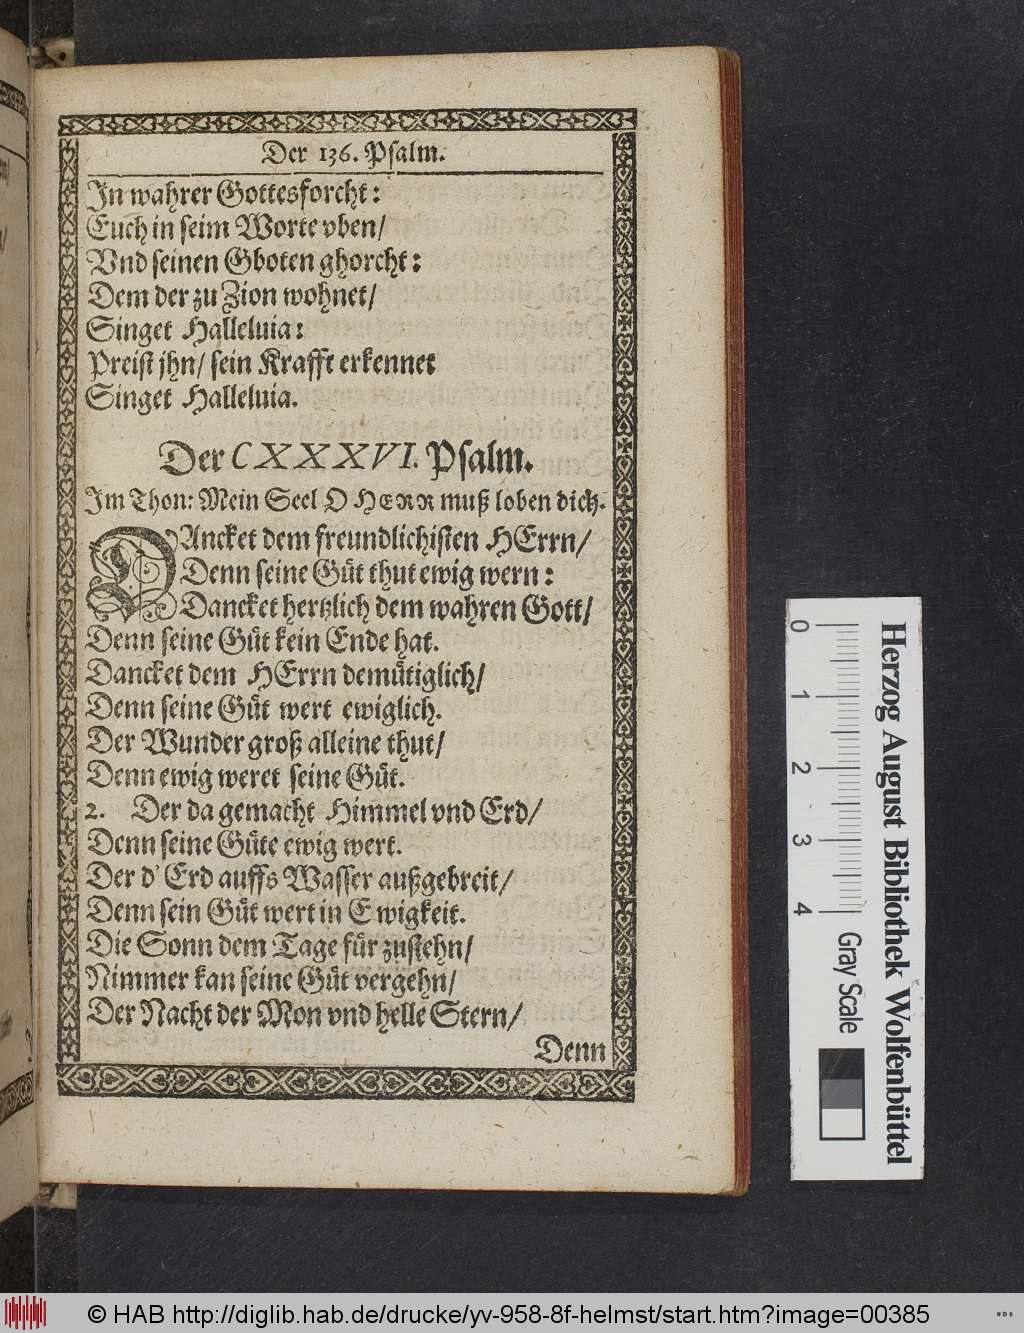 Der 136. Psalm.
In wahrer Gottesforcht:
Euch in seim Worte vben/
Vnd seinen Gboten ghorcht:
Dem der zu Zion wohnet/
Singet Halleluia:
Preist jhn/ sein Krafft erkennet
Singet Halleluia.
Der CXXXVI. Psalm.
Im Thon: Mein Seel O HERR muß loben dich.
DAncket dem freundlichisten HErrn/
Denn seine Güt thut ewig wern:
Dancket hertzlich dem wahren Gott/
Denn seine Güt kein Ende hat.
Dancket dem HErrn demütiglich/
Denn seine Güt wert ewiglich.
Der Wunder groß alleine thut/
Denn ewig weret seine Güt.
2. Der da gemacht Himmel vnd Erd/
Denn seine Güte ewig wert.
Der d' Erd auffs Wasser außgebreit/
Denn sein Güt wert in Ewigkeit.
Die Sonn dem Tage für zustehn/
Nimmer kan seine Güt vergehn/
Der Nacht der Mon vnd helle Stern/
Denn
0 1 2 3 4
Gray Scale
Herzog August Bibliothek Wolfenbüttel
© HAB http://diglib.hab.de/drucke/yv-958-8f-helmst/start.htm?image=00385